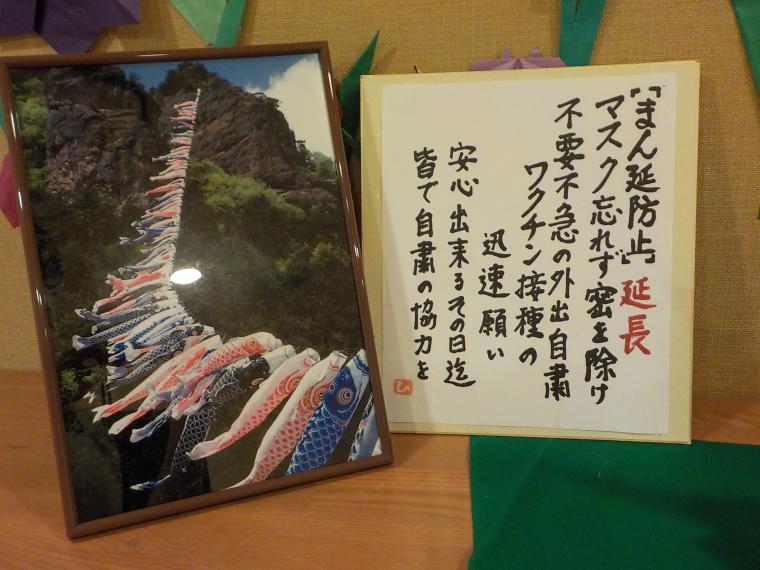 「まん延防止」延長
マスク忘れず密を除け
不要不急の外出自粛
ワクチン接種の
迅速願い
安心出来るその日迄
皆で自粛の協力を
ひ